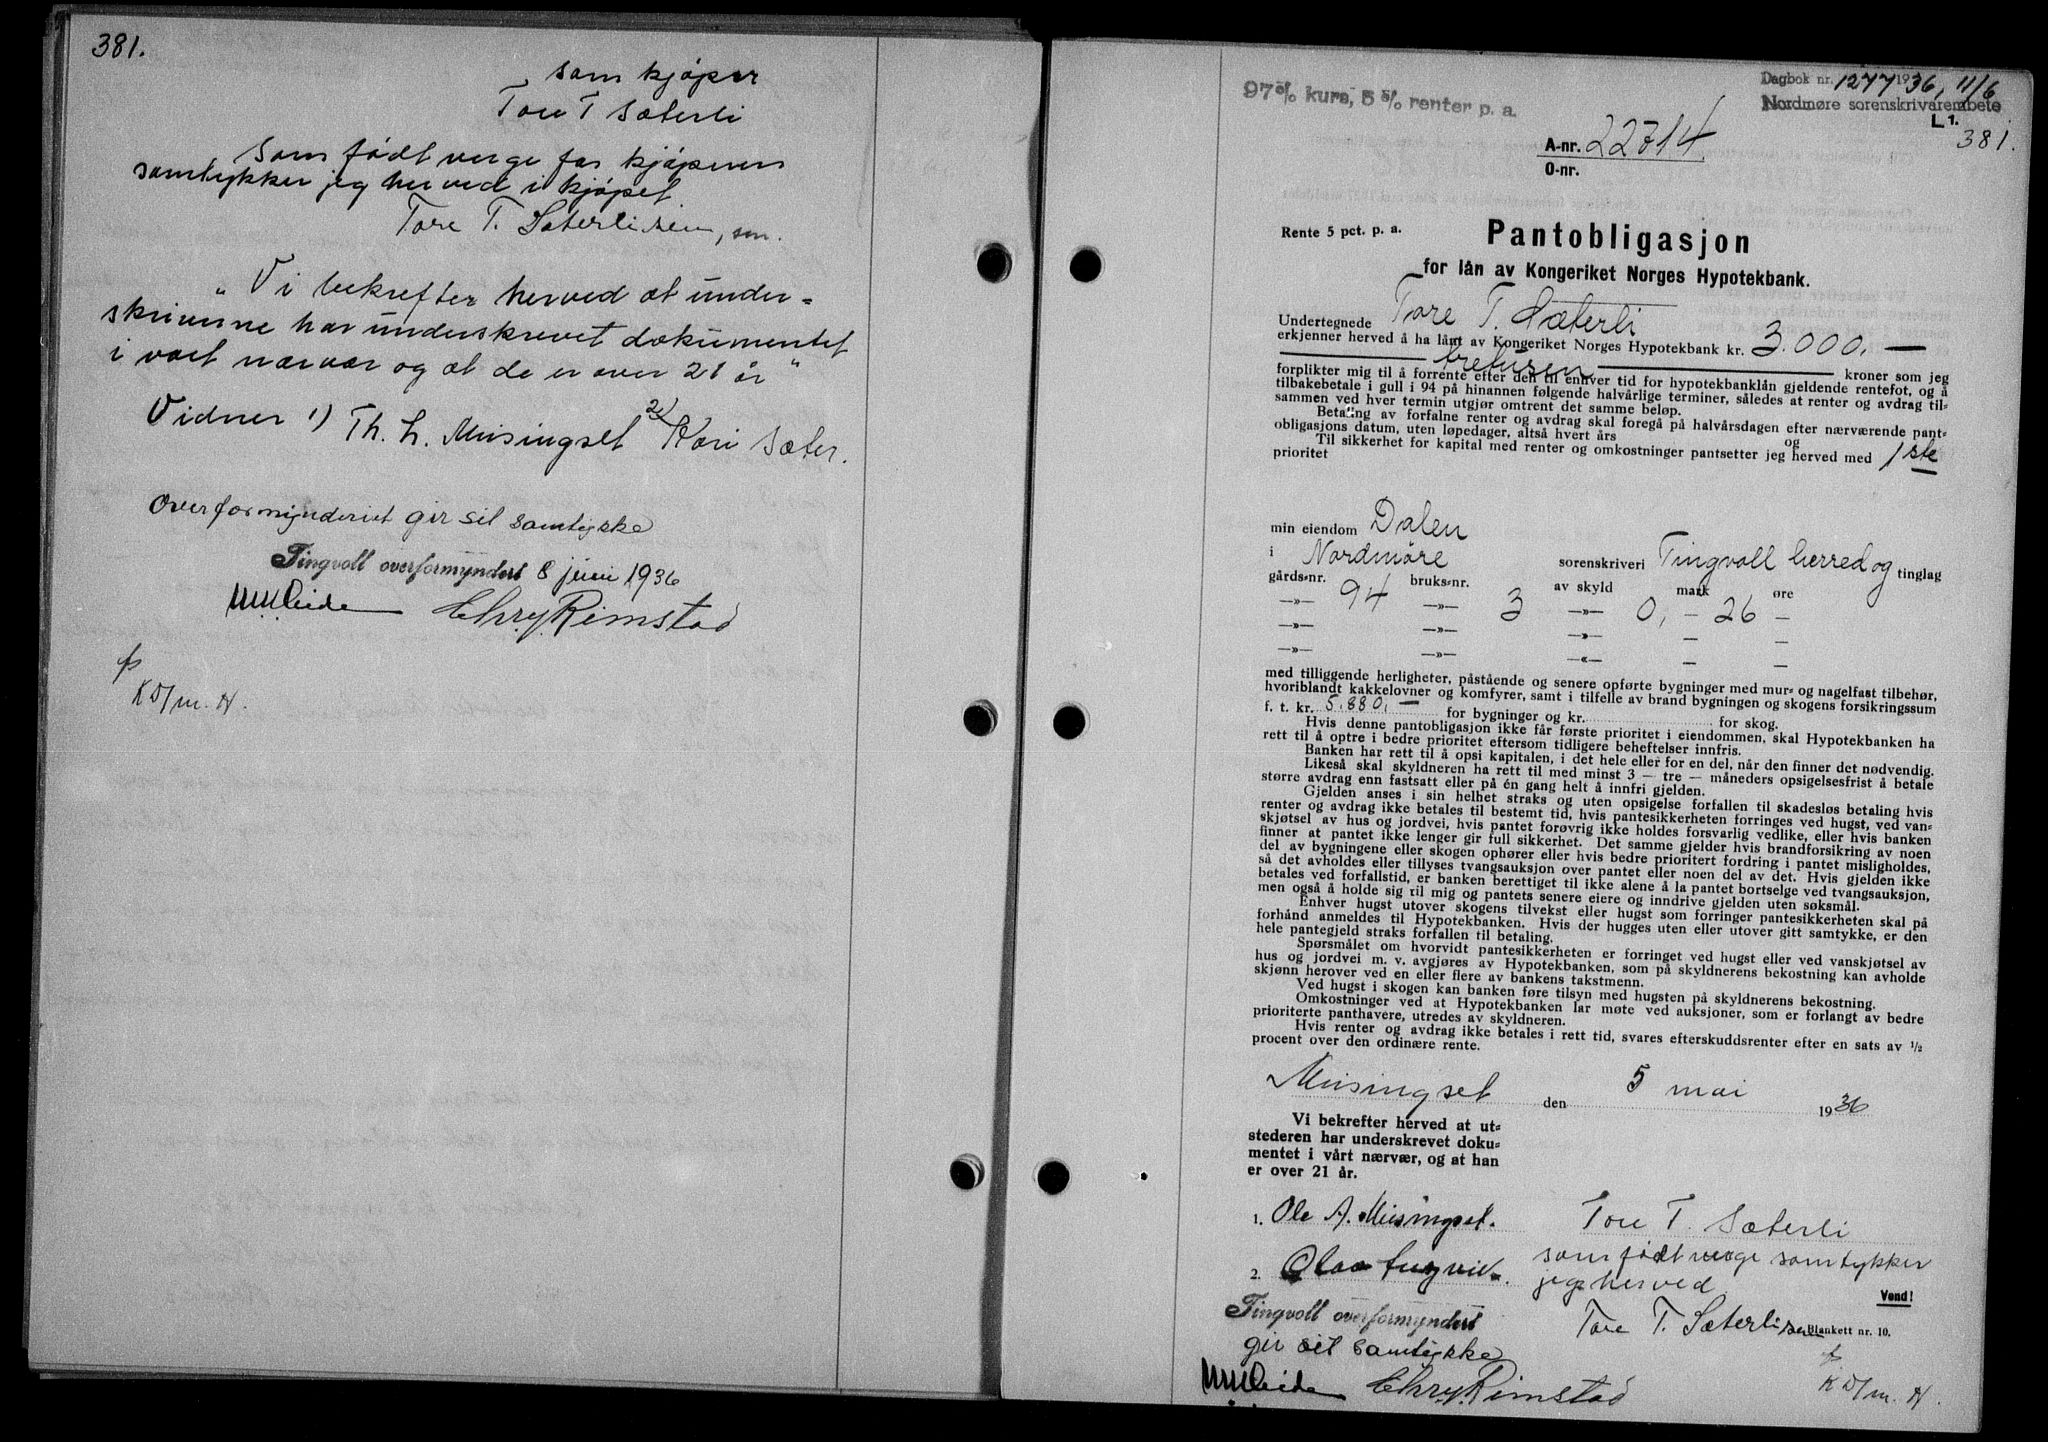 381.
som kjøper
Tore T Sæterli
Som født verge for kjøperen
samtykker jeg herved i kjøpet
Tore T. Sæterli sen, sen.
"Vi bekrefter herved at under-
skriverne har underskrevet dokumentet
i vort nærvær og at de er over 21 år"
Vidner 1) Th. L. Meisingset 2) Kari Sæter.
Overformynderiet gir sit samtykke
Tingvoll overformynderi 8 juni 1936
Chr. J. Rimstad
K D/m. H.
97 5/0 kurs, 5 5/0 renter p. a.
Dagbok nr. 1277 1936, 11/6
Nordmøre sorenskrivarembete
L1.
381.
A-nr. 22314
O-nr.
Rente 5 pct. p. a.
Pantobligasjon
for lån av Kongeriket Norges Hypotekbank.
Undertegnede Tore T. Sæterli
erkjenner herved å ha lånt av Kongeriket Norges Hypotekbank kr. 3.000.—
tretusen kroner som jeg
forplikter mig til å forrente efter den til enhver tid for hypotekbanklån gjeldende rentefot, og å
tilbakebetale i gull i 94 på hinannen følgende halvårlige terminer, således at renter og avdrag til=
sammen ved hver termin utgjør omtrent det samme beløp.
Betaling av forfalne renter og avdrag skal foregå på halvårsdagen efter nærværende pant=
obligasjons datum, uten løpedager, altså hvert års og
Til sikkerhet for kapital med renter og omkostninger pantsetter jeg herved med 1ste
prioritet
min eiendom Dalen
i Nordmøre sorenskriveri Tingvoll herred og tinglag
gårds=nr. bruks=nr. av skyld mark øre
—»— 94 —»— 3 —»— 0, — 26 —
—»— —»— —»— — —
—»— —»— —«— — —
med tilliggende herligheter, påstående og senere opførte bygninger med mur= og nagelfast tilbehør,
hvoriblandt kakkelovner og komfyrer, samt i tilfelle av brand bygningen og skogens forsikringssum
f. t. kr. 5.880,— for bygninger og kr. for skog.
Hvis denne pantobligasjon ikke får første prioritet i eiendommen, skal Hypotekbanken ha
rett til å optre i bedre prioritet eftersom tidligere beheftelser innfris.
Banken har rett til å opsi kapitalen, i det hele eller for en del, når den finner det nødvendig.
Likeså skal skyldneren ha rett til med minst 3 — tre — måneders opsigelsesfrist å betale
større avdrag enn fastsatt eller på én gang helt å innfri gjelden.
Gjelden anses i sin helhet straks og uten opsigelse forfallen til skadesløs betaling hvis
renter og avdrag ikke betales til bestemt tid, hvis pantesikkerheten forringes ved hugst, ved van=
skjøtsel av hus og jordvei, hvis pantet forøvrig ikke holdes forsvarlig vedlike, eller hvis banken
finner at pantet ikke lenger gir full sikkerhet. Det samme gjelder hvis brandforsikring av noen
del av bygningene eller skogen ophører eller hvis bedre prioritert fordring i pantet misligholdes,
så det avholdes eller tillyses tvangsauksjon over pantet eller noen del av det. Hvis gjelden ikke
betales ved forfallstid, er banken berettiget til ikke alene å la pantet bortselge ved tvangsauksjon,
men også å holde sig til mig og pantets senere eiere og inndrive gjelden uten søksmål.
Enhver hugst utover skogens tilvekst eller hugst som forringer pantesikkerheten skal på
forhånd anmeldes til Hypotekbanken. Hvis der hugges uten eller utover gitt samtykke, er den
hele pantegjeld straks forfallen til betaling.
Spørsmålet om hvorvidt pantesikkerheten er forringet ved hugst eller ved vanskjøtsel av
hus og jordvei m. v. avgjøres av Hypotekbanken, som på skyldnerens bekostning kan avholde
skjønn herover ved en eller flere av bankens takstmenn.
Ved hugst i skogen kan banken føre tilsyn med hugsten på skyldnerens bekostning.
Omkostninger ved at Hypotekbanken lar møte ved auksjoner, som er forlangt av bedre
prioriterte panthavere, utredes av skyldneren.
Hvis renter og avdrag ikke betales i rett tid, svares efterskuddsrenter efter en sats av 1/2
procent over den ordinære rente.
Meisingset den 5 mai 1936
Vi bekrefter herved at ut=
stederen har underskrevet doku=
mentet i vårt nærvær, og at han
er over 21 år.
1. Ole A. Meisingset.
Tore T. Sæterli
2. Olav
som født verge samtykker
jeg herved
Vend!
Tingvoll overformynderi
Tore T. Sæterli sen
Blankett nr. 10.
gir sit samtykke
Chr. J. Rimstad
K D/m. H